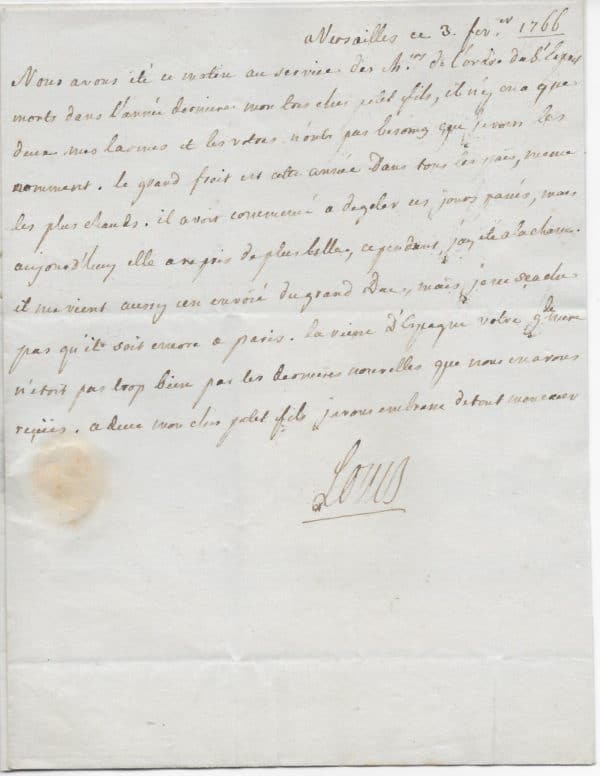 a Versailles ce 3. fev.er 1766
Nous avons été ce matin au service des M.rs de l'ordre du S.t Esprit
morts dans l'année derniere mon tres cher petit fils, il n'y en a que
deux mes larmes et les votres n'ont pas besoing que je vous les
nomment. le grand froit est cette année dans tous les païs, mesme
les plus chauds. il avoit commencé a degeler ces jours passés, mais
aujourd'huy elle a repris de plus belle, cependant j'ay été a la chasse.
il me vient aussy un envoié du grand Duc, mais je ne sçache
pas qu'il soit encore a paris. la reine d'Espagne votre g.de mere
n'etoit pas trop bien par les dernieres nouvelles que nous en avons
reçües. adieu mon cher petit fils je vous embrasse de tout mon cœur
Louis